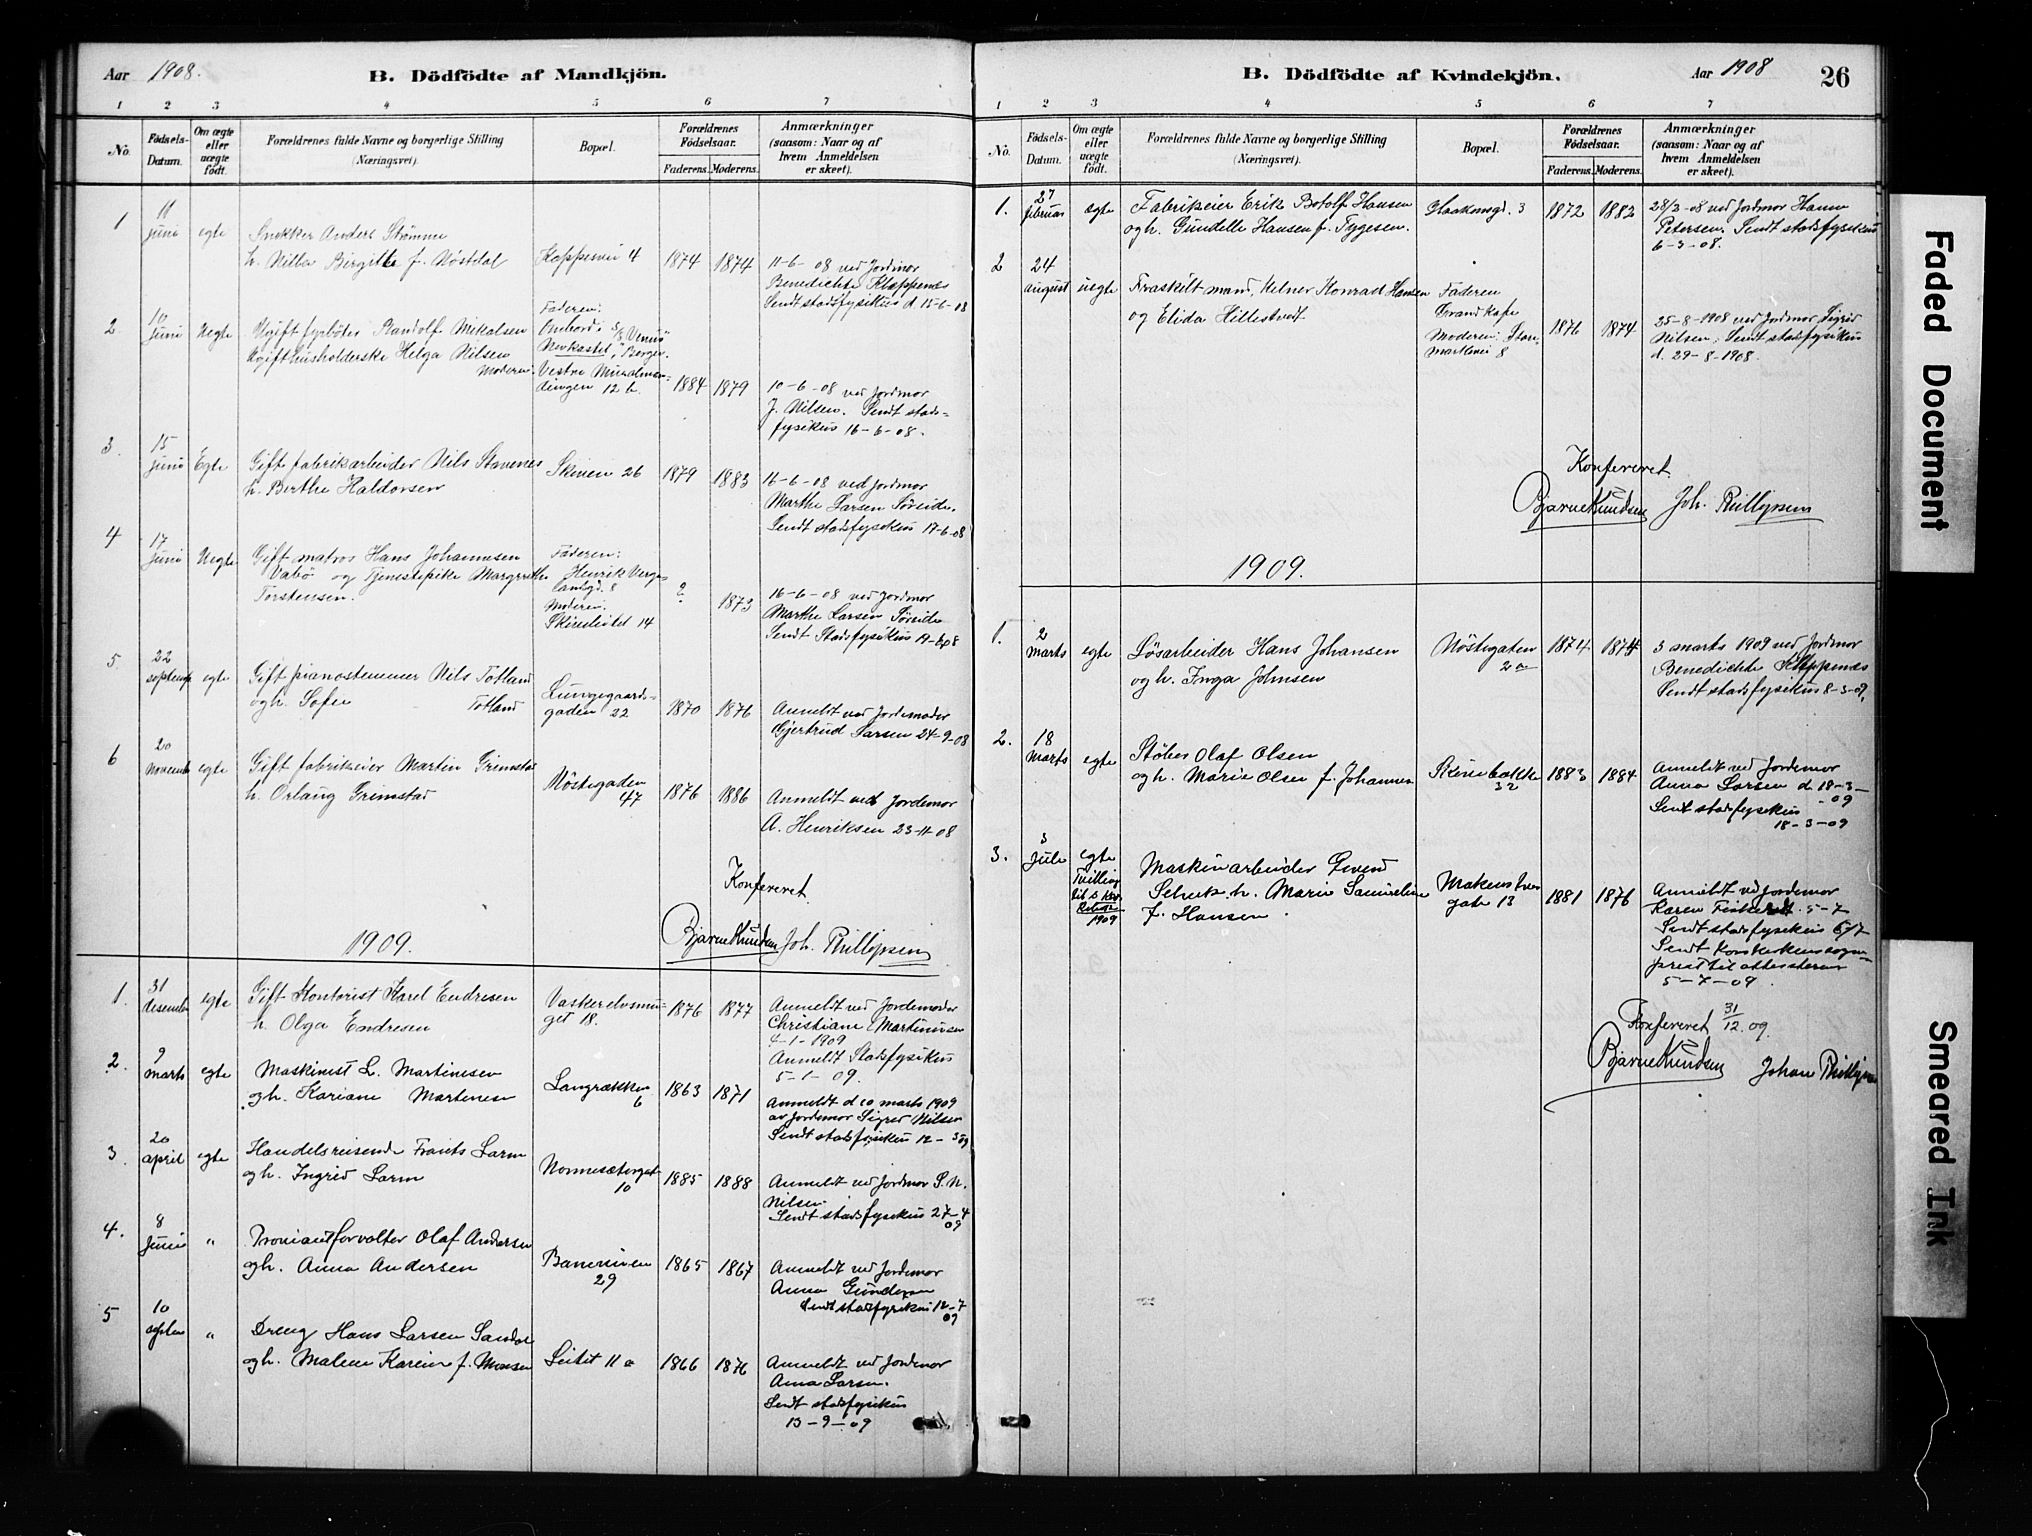 Aar 1908.
B. Dödfödte af Mandkjön.
1 2 3 4 5 6 7
No.
Födsels-Datum.
Om ægte eller uægte født.
Forældrenes fulde Navne og borgerlige Stilling
(Næringsvei).
Bopæl.
Forældrenes Fødselsaar.
Faderens. Moderens.
Anmærkninger
(saasom: Naar og af
hvem Anmeldelsen
er skeet).
1 11 juni egte
Snekker Anders Strømme
h. Nilla Birgitte f. Nøstdal
Kappesvei 4 1874 1874
11-6-08 ved Jordmor
Benedichte Kleppenes
Sendt stadsfysikus d. 15-6-08
2 10 Juni Uegte
Ugift fyrbøter Randolf Mikalsen
Ugift husholderske Helga Nilsen
Moderen:
Faderen:
Ombord i S/S "Venus"
Nykastet, Bergen.
Vestre
12 b. 1884 1879
10-6-08 ved Jordmor
J. Nilsen. Sendt stads=
fysikus 16-6-08.
3. 15 juni Egte
Gift fabrikarbeider Nils Stavenes
h. Berthe Haldorsen
Skivien 26 1879 1883
16-6-08 ved Jordmor
Marthe Larsen Søreide.
Sendt stadsfysikus 17-6-08
4 17 Juni Uegte
Gift matros Hans Johannesen
Vabø og Tjenestepike Margrethe
Torstensen.
Faderen:
Henrik Verge-
landsgd. 8
Moderen:
14
? 1873
16-6-08 ved Jordmor
Marthe Larsen Søreide
Sendt Stadsfysikus 17-6-08
5. 22 septemb egte
Gift pianostemmer Nils Totland
og h. Sofie Totland
Lungegaards-
gaden 22 1870 1876
Anmeldt ved Jordemoder
Gjertrud Larsen 24-9-08
6 20 novemb egte
Gift fabrikeier Martin Grimstad
h. Orlaug Grimstad
Nøstegaden
47 1876 1886
Anmeldt ved Jordemor
A. Henriksen 23-11-08
Konfereret
Bjarne Knudsen Joh. Phillipsen
1909.
1. 31 desember egte
Gift Kontorist Karel Endresen
h. Olga Endresen
Vaskerelvsmu-
get 18. 1876 1877
Anmeldt ved Jordemoder
Christiane Martinusen
4-1-1909
Anmeldt Stadsfysikus
5-1-09.
2. 9 marts egte
Maskinist L. Martinesen
og h. Kariane Martenesen
Langrækken
6 1863 1871
Anmeldt d 10 marts 1909
av Jordemor Sigrid Nilsen
Sendt stadsfysikus 12-3-09
3. 20 april egte
Handelsreisende Frants Larm
og h. Ingrid Larm
Nonnesætergt
10 1885 1888
Anmeldt ved Jordmor S. N.
Nilsen.
Sendt stadsfysikus 27-4
09
4. 8 Juni "
Proviantforvalter Olaf Andersen
og h. Anna Andersen
Baneveien
29 1865 1867
Anmeldt ved Jordemor
Anna Gundersen
Sendt stadsfysikus 12-7
09
5 10 "
Dreng Hans Larsen
og h. Malene Karine f. Monsen
Leitet 11a 1866 1876
Anmeldt ved Jordmor
Anna Larsen.
Sendt stadsfysikus
13-9-09
B. Dödfödte af Kvindekjön.
Aar 1908
26
1 2 3 4 5 6 7
No.
Födsels-Datum.
Om ægte eller uægte født.
Forældrenes fulde Navne og borgerlige Stilling
(Næringsvei).
Bopæl.
Forældrenes Fødselsaar.
Faderens. Moderens.
Anmærkninger
(saasom: Naar og af
hvem Anmeldelsen
er skeet).
1. 27 februar egte
Fabrikeier Erik Botolf Hansen
og h. Gundelle Hansen f. Tygesen.
Haakonsgd. 3 1872 1882
28/2-08 ved Jordmor Hanna
Petersen. Sendt stadsfysikus
6-3-08.
2 24 august uegte
Fraskilt mand, Kelner Konrad Hansen
og Elida Hillestvedt
Faderen
Grand Kafe
Moderen: Store
Markevei 8 1876 1874
25-8-1908 ved Jordmor Sigrid
Nilsen. Sendt stadsfysikus
d. 29-8-1908.
Konfereret.
Bjarne Knudsen Joh. Phillipsen
1909.
1. 2 marts egte
Løsarbeider Hans Johansen
og h. Inga Johnsen
Nøstegaten
2a 1874 1874
3 marts 1909 ved Jordmor
Benedichte Kleppenes
Sendt stadsfysikus 8-3-09,
2. 18 Marts egte
Støber Olaf Olsen
og h. Marie Olsen f. Johannesen
Skivebakken
32 1883 1884
Anmeldt ved Jordemor
Anna Larsen d. 18-3-
-09
Sendt stadsfysikus
18-3-09
3. 3 Jule egte
Tvilling
1909
Maskinarbeider
h. Marie Samuelsen
f. Hansen.
gate 13 1881 1876
Anmeldt ved Jordemor
Karen 5-7-
Sendt stadsfysikus 6/7
Sendt Korskirkens sogne-
prest til attestation
5-7-09.
Konfereret 31/12.09.
Bjarne Knudsen Johan Phillipsen
Faded Document
Smeared Ink